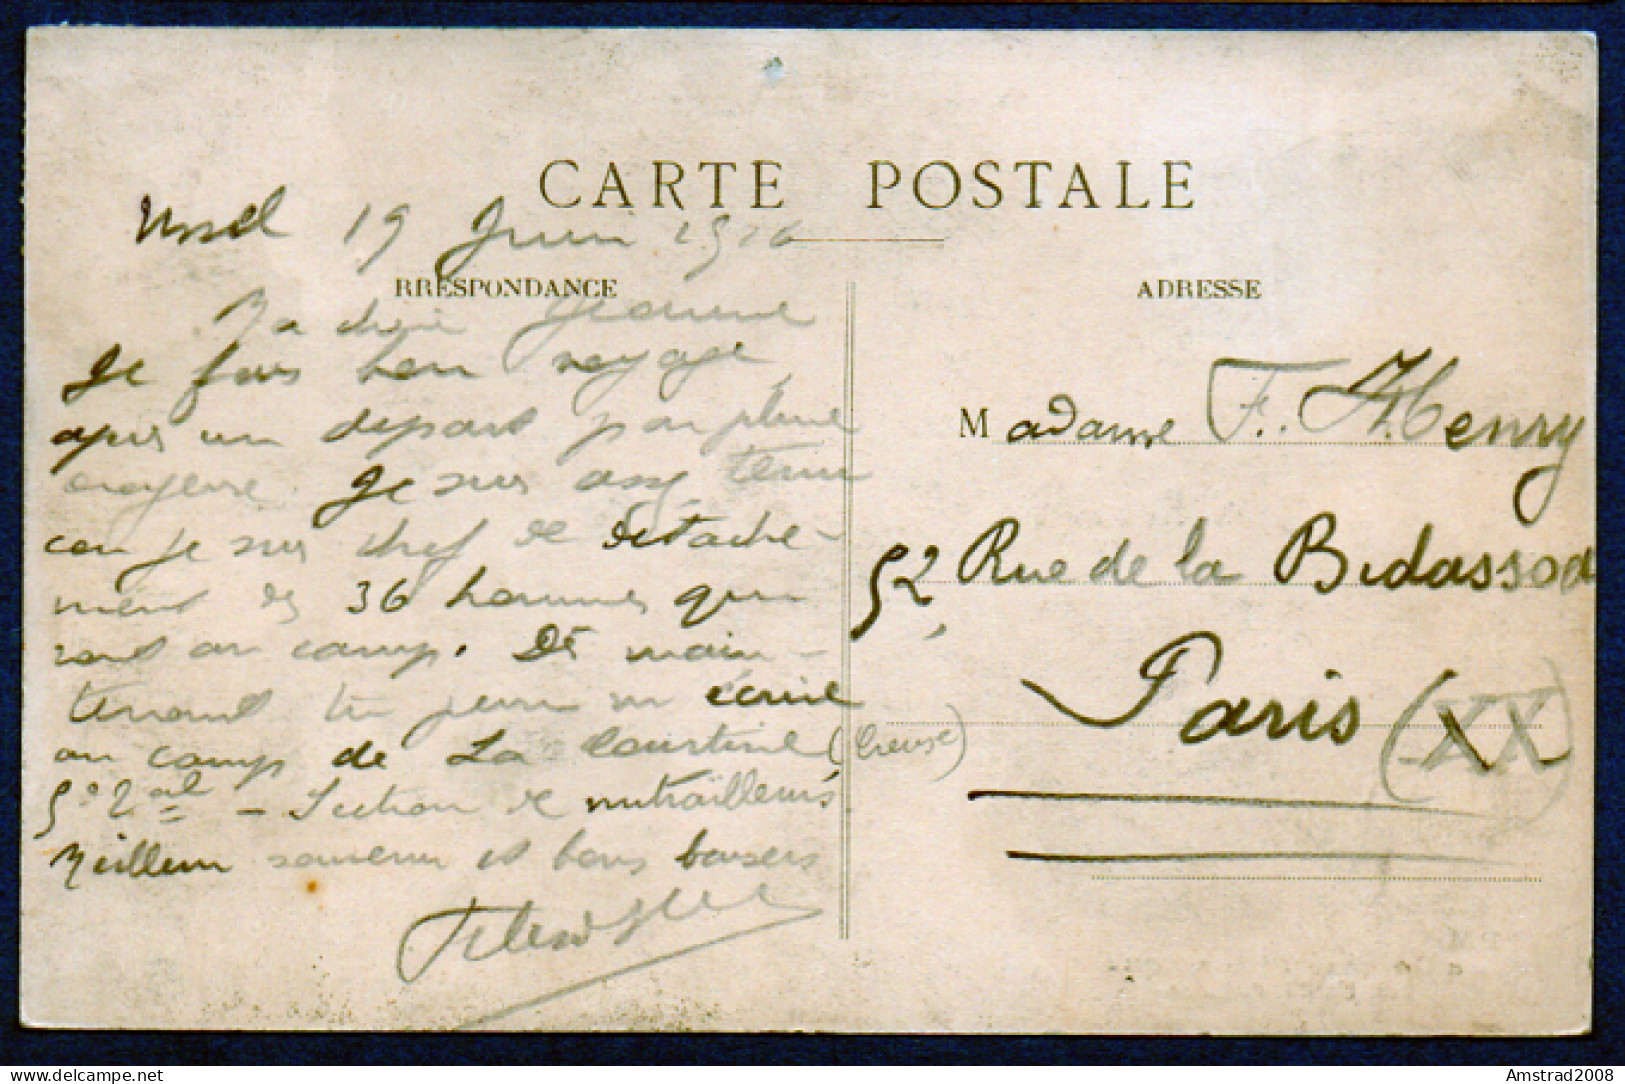 CARTE POSTALE
Ussel 19 Juin 1916
RRESPONDANCE
Ma chère Jeanne
Je fais bon voyage
après un départ par pluie
Je suis assez tenu
car je suis chef de détache-
ment de 36 hommes qui
vont au camp. Dès main-
tenant tu peux m'écrire
au camp de La Courtine (Creuse)
5e 2al - Section de mitrailleurs
Meilleur souvenir et bons baisers
ADRESSE
Madame F. Henry
52, Rue de la Bidassoa
Paris (XX)
Amstrad2008